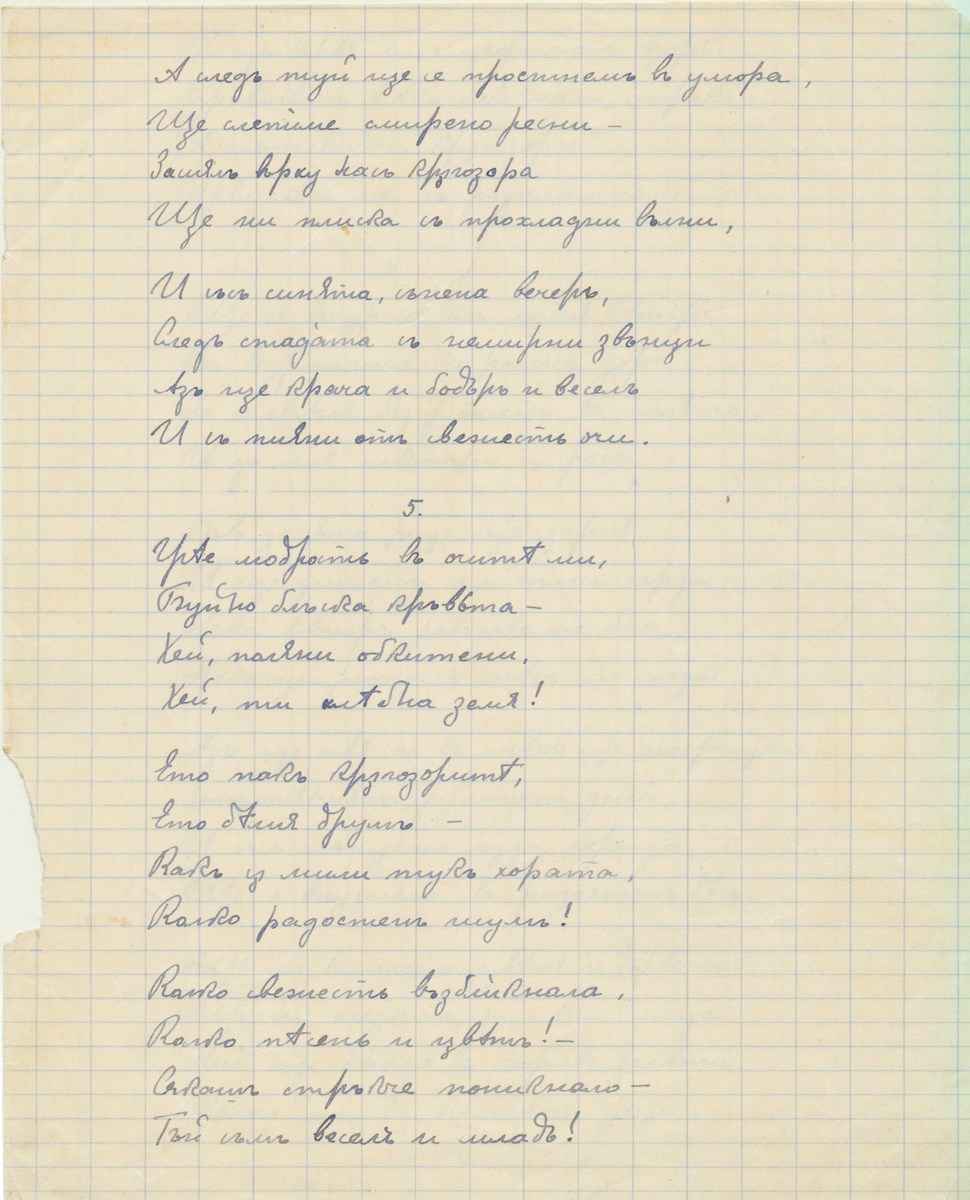 А следъ туй ще се простнемъ въ умора,
Ще слепиме смирено ресни –
Засмѣлъ върху насъ крѫгозора
Ще ни плиска съ прохладни вълни,
И съсъ синята, сънена вечерь,
Следъ стадата съ немирни звънци
Азъ ще крача и бодъръ и веселъ
И съ пияни отъ свежесть очи.
5.
Грѣе модрость въ очитѣ ми,
Буйно блъска кръвьта –
Хей, поляни обкитени,
Хей, ти хлѣбна земя!
Ето пакъ крѫгозоритѣ,
Ето бѣлия друмъ –
Какъ сѫ мили тукъ хората,
Колко радостенъ шумъ!
Колко свежесть възбликнала,
Колко пѣсень и цвѣтъ! –
Сякашъ стръкче поникнало –
Тъй съмъ веселъ и младъ!